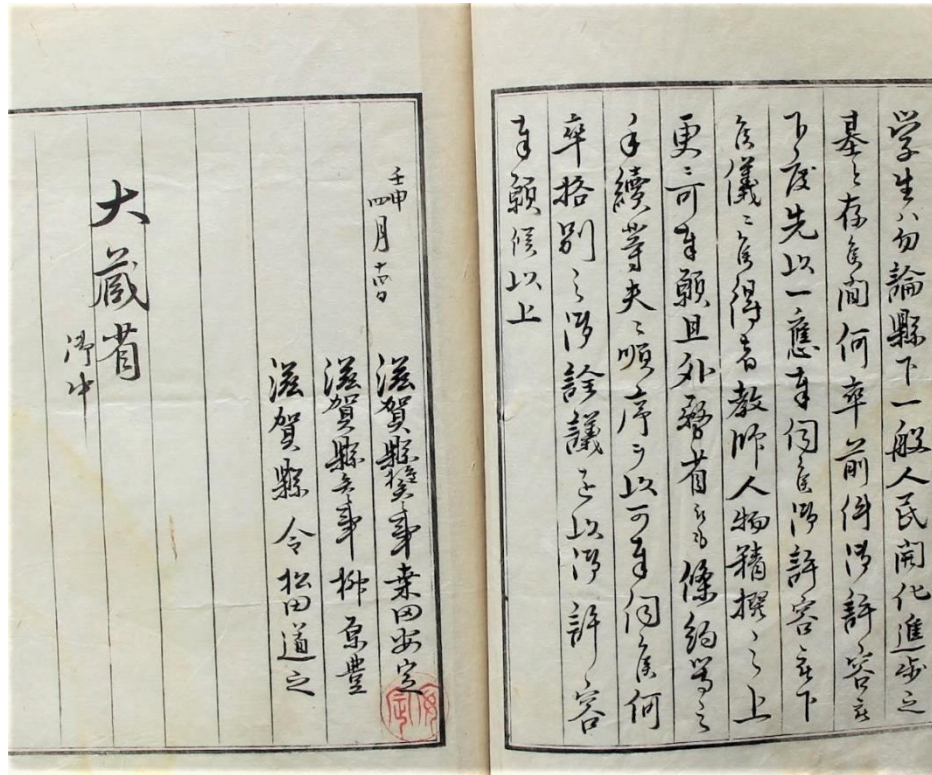 学生ハ勿論縣下一般人民開化進歩之
基と存候間何卒前件御許容被
下度先以一應奉伺候御許容被下
候儀ニ候得者教師人物精撰之上
更ニ可奉願且外務省ゟ條約等之
手續等夫々順序ヲ以可奉伺候何
卒格別之御詮議を以御許容
奉願候以上
壬申
四月十四日
滋賀縣権参事 桑田安定
滋賀縣参事 柳原豊
滋賀縣 令 松田道之
大蔵省
御中